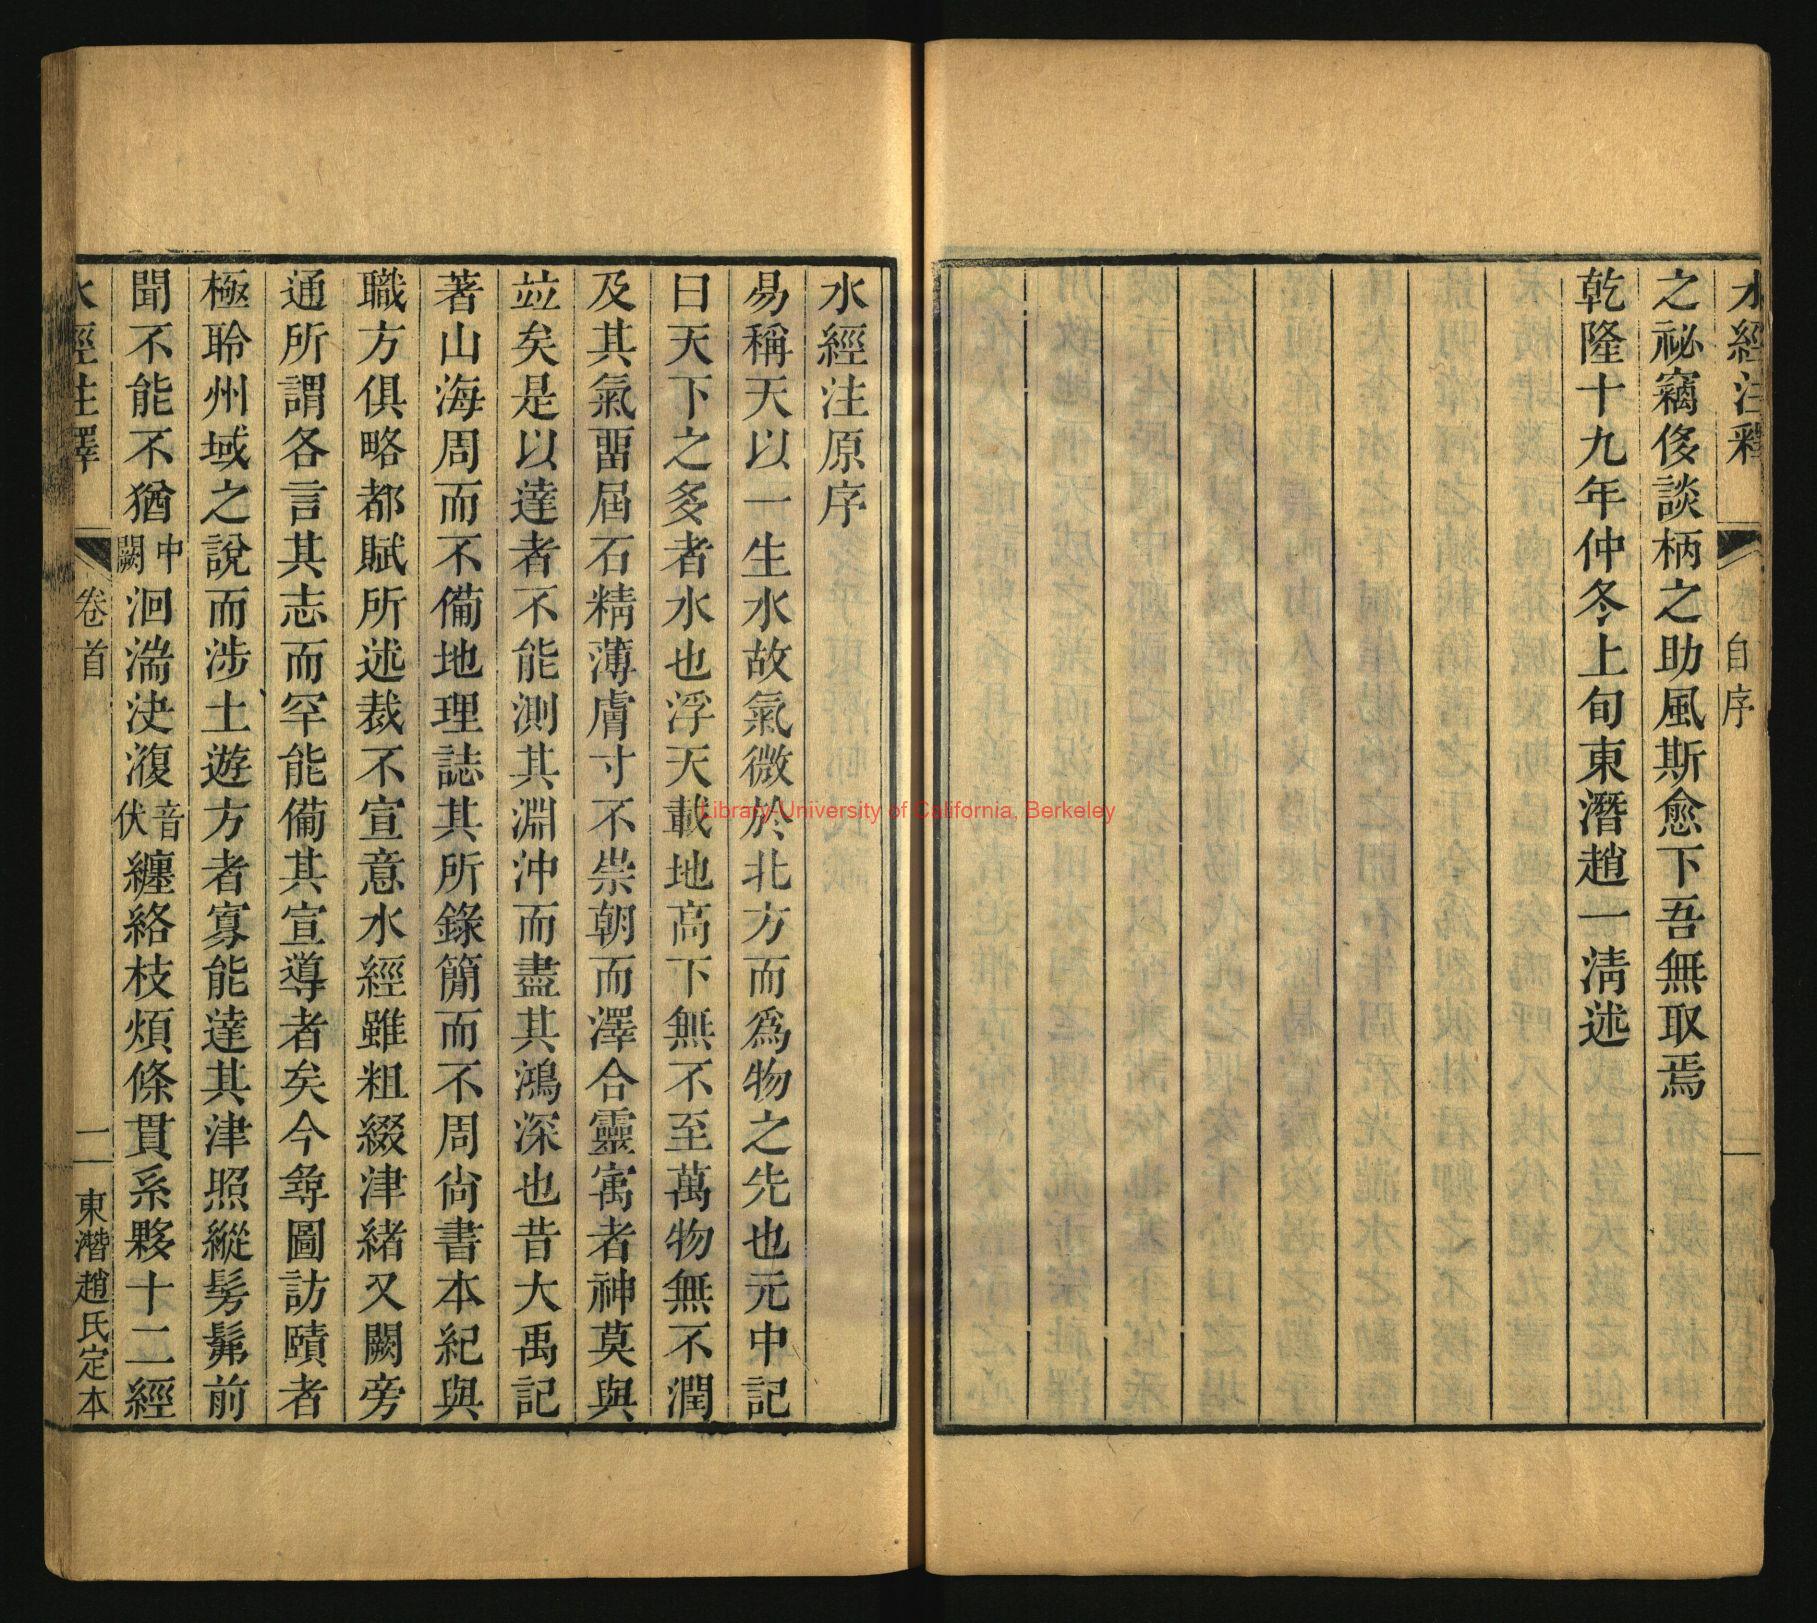 水經注釋
自序
之祕竊侈談柄之助風斯愈下吾無取焉
乾隆十九年仲冬上旬東潛趙一清述
水經注原序
易稱天以一生水故氣微於北方而爲物之先也元中記
曰天下之多者水也浮天載地高下無不至萬物無不潤
及其氣畱屆石精薄膚寸不崇朝而澤合靈㝢者神莫與
竝矣是以達者不能測其淵沖而盡其鴻深也昔大禹記
著山海周而不備地理誌其所錄簡而不周尙書本紀與
職方俱略都賦所述裁不宣意水經雖粗綴津緒又闕旁
通所謂各言其志而罕能備其宣導者矣今尋圖訪賾者
極聆州域之說而涉土遊方者寡能達其津照縱髣髴前
聞不能不猶中闕洄湍決澓音伏纏絡枝煩條貫系夥十二經
水經注釋
卷首
一
東潛趙氏定本
Library-University of California, Berkeley